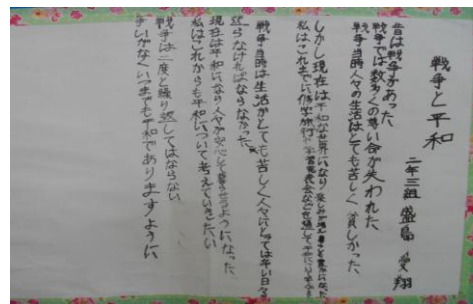 戦争と平和
二年三組 盛島 愛翔
昔は戦争があった
戦争では数多くの尊い命が失われた
戦争当時人々の生活はとても苦しく貧しかった
しかし現在は平和な世界になり楽しみが増え
私はこれまでに修学旅行や学習発表会などを通して平和に
戦争当時は生活がとても苦しく人々にとっては辛い日々を
送らなければならなかった
現在は平和になり人々が安心して暮らせるようになった
私はこれからも平和について考えていきたい
戦争は二度と繰り返してはならない
争いがなくいつまでも平和でありますように